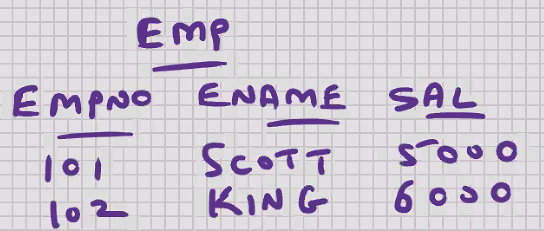 EMP
EMPNO ENAME SAL
101 SCOTT 5000
102 KING 6000